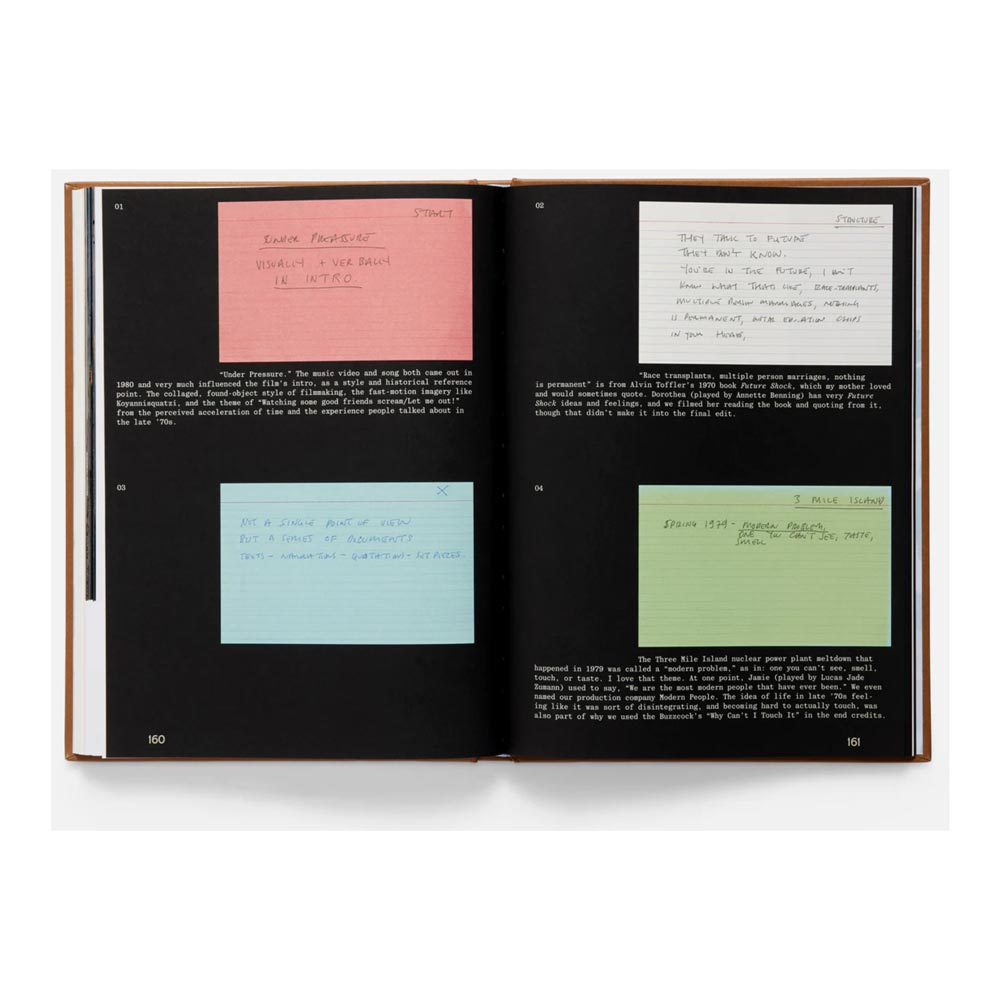 01
START
UNDER PREASSURE
VISUALLY + VERBALLY
IN INTRO
"Under Pressure." The music video and song both came out in
1980 and very much influenced the film's intro, as a style and historical reference
point. The collaged, found-object style of filmmaking, the fast-motion imagery like
Koyannisquatzi, and the theme of "Watching some good friends scream/Let me out!"
from the perceived acceleration of time and the experience people talked about in
the late '70s.
03
X
NOT A SINGLE POINT OF VIEW
BUT A SERIES OF DOCUMENTS
TEXTS - NARRATIONS - QUOTATIONS - SET PIECES.
160
02
STRUCTURE
THEY TALK TO FUTURE
THEY DON'T KNOW.
YOU'RE IN THE FUTURE, I DON'T
KNOW WHAT THATS LIKE, RACE-TRANSPLANTS,
MULTIPLE PERSON MARRIAGES, NOTHING
IS PERMANENT, CHIPS
IN YOUR HEADS,
"Race transplants, multiple person marriages, nothing
is permanent" is from Alvin Toffler's 1970 book Future Shock, which my mother loved
and would sometimes quote. Dorothea (played by Annette Benning) has very Future
Shock ideas and feelings, and we filmed her reading the book and quoting from it,
though that didn't make it into the final edit.
04
3 MILE ISLAND
SPRING 1979 - MODERN PROBLEM,
ONE YOU CAN'T SEE, TASTE,
SMELL
The Three Mile Island nuclear power plant meltdown that
happened in 1979 was called a "modern problem," as in: one you can't see, smell,
touch, or taste. I love that theme. At one point, Jamie (played by Lucas Jade
Zumann) used to say, "We are the most modern people that have ever been." We even
named our production company Modern People. The idea of life in late '70s feel-
ing like it was sort of disintegrating, and becoming hard to actually touch, was
also part of why we used the Buzzcock's "Why Can't I Touch It" in the end credits.
161